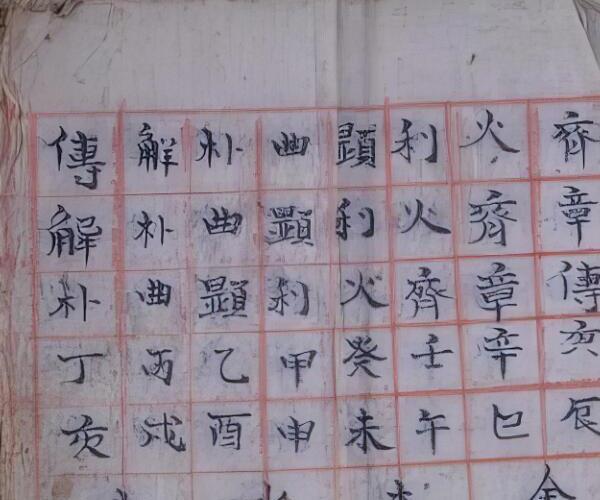 齊章傳庚辰金
火齊章辛巳
利火齊壬午
顯利火癸未
曲顯利甲申
朴曲顯乙酉
解朴曲丙戌
傳解朴丁亥